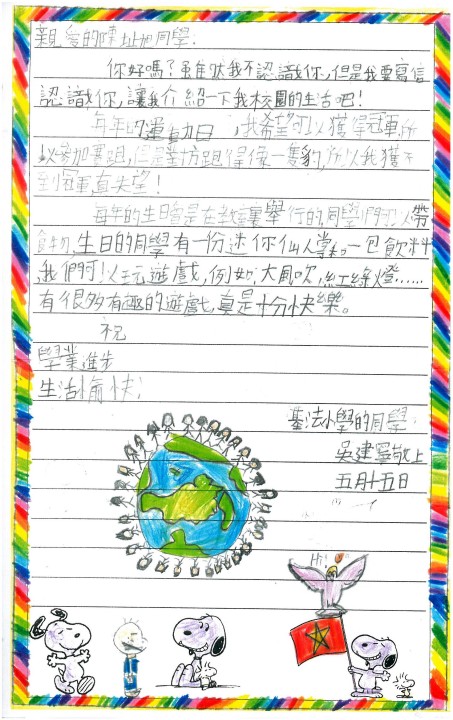 親愛的陳同學:
你好嗎?雖然我不認識你,但是我要寫信
認識你,讓我介紹一下我校園的生活吧!
每年的運動日,我希望可以獲得冠軍,所
以參加賽跑,但是對方跑得像一隻豹,所以我獲不
到冠軍真失望!
每年的生日會是在教室舉行的,同學們可以帶
食物,生日的同學有一份迷你仙人掌和一包飲料
我們可以玩遊戲,例如:大風吹,紅綠燈……
有很多有趣的遊戲,真是十分快樂。
祝
學業進步
生活愉快!
基法小學的同學
吳建寧敬上
五月十五日
Hi!